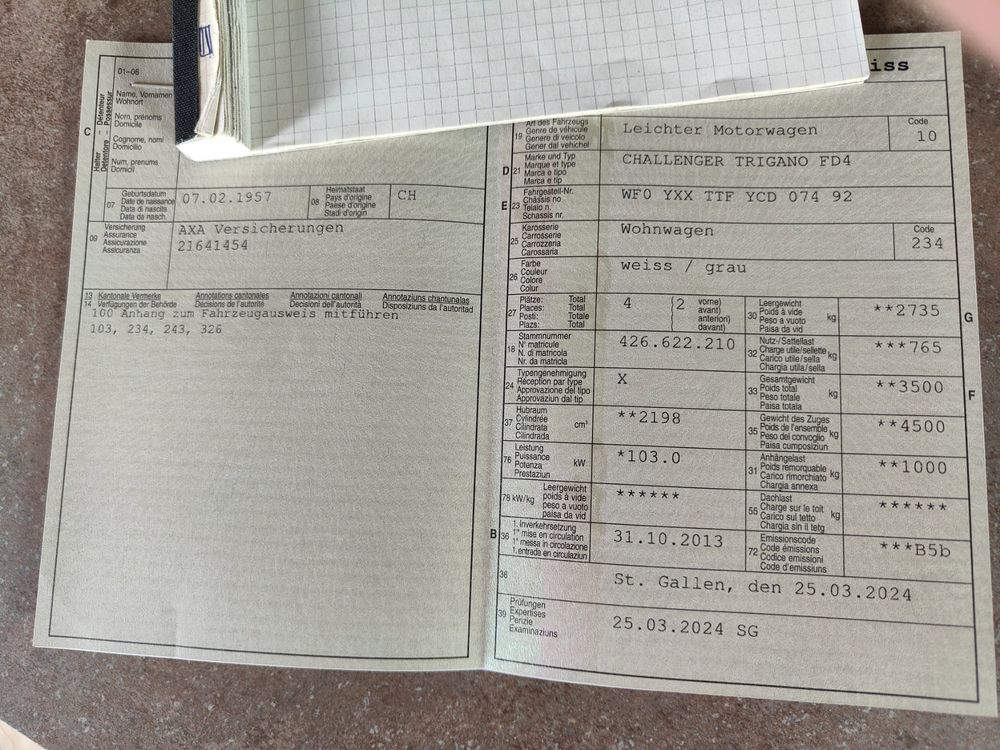 iss
01-06
C
Halter – Détenteur
Detentore – Possessur
Name, Vornamen
Wohnort
Nom, prénoms
Domicile
Cognome, nomi
Domicilio
Num, prenums
Domicil
07
Geburtsdatum
Date de naissance
Data di nascita
Data da nasch.
07.02.1957
08
Heimatstaat
Pays d'origine
Paese d'origine
Stadi d'origin
CH
09
Versicherung
Assurance
Assicurazione
Assicuranza
AXA Versicherungen
21641454
13 Kantonale Vermerke Annotations cantonales Annotazioni cantonali Annotaziuns chantunalas
14 Verfügungen der Behörde Décisions de l'autorité Decisioni dell'autorità Disposiziuns da l'autoritad
100 Anhang zum Fahrzeugausweis mitführen
103, 234, 243, 326
19
Art des Fahrzeugs
Genre de véhicule
Genere di veicolo
Gener dal vehichel
Leichter Motorwagen
Code
10
D 21
Marke und Typ
Marque et type
Marca e tipo
Marca e tip
CHALLENGER TRIGANO FD4
E 23
Fahrgestell-Nr.
Châssis no
Telaio n.
Schassis nr.
WF0 YXX TTF YCD 074 92
25
Karosserie
Carrosserie
Carrozzeria
Carossaria
Wohnwagen
Code
234
26
Farbe
Couleur
Colore
Colur
weiss / grau
27
Plätze: Total
Places: Total
Posti: Totale
Plazs: Total
4
2
vorne)
avant)
anteriori)
davant)
30
Leergewicht
Poids à vide
Peso a vuoto
Paisa da vid
kg
**2735
G
18
Stammnummer
N° matricule
N. di matricola
Nr. da matricla
426.622.210
32
Nutz-/Sattellast
Charge utile/sellette
Carico utile/sella
Chargia utila/sella
kg
***765
24
Typengenehmigung
Réception par type
Approvazione del tipo
Approvaziun dal tip
X
33
Gesamtgewicht
Poids total
Peso totale
Paisa totala
kg
**3500
F
37
Hubraum
Cylindrée
Cilindrata
Cilindrada
cm³
**2198
35
Gewicht des Zuges
Poids de l'ensemble
Peso del convoglio
Paisa cumposiziun
kg
**4500
76
Leistung
Puissance
Potenza
Prestaziun
kW
*103.0
31
Anhängelast
Poids remorquable
Carico rimorchiato
Chargia annexa
kg
**1000
78 kW/kg
Leergewicht
poids à vide
peso a vuoto
paisa da vid
******
55
Dachlast
Charge sur le toit
Carico sul tetto
Chargia sin il tetg
kg
******
B 36
1. Inverkehrsetzung
1re mise en circulation
1a messa in circolazione
1. entrada en circulaziun
31.10.2013
72
Emissionscode
Code émissions
Codice emissioni
Code d'emissiuns
***B5b
38
St. Gallen, den 25.03.2024
39
Prüfungen
Expertises
Perizie
Examinaziuns
25.03.2024 SG